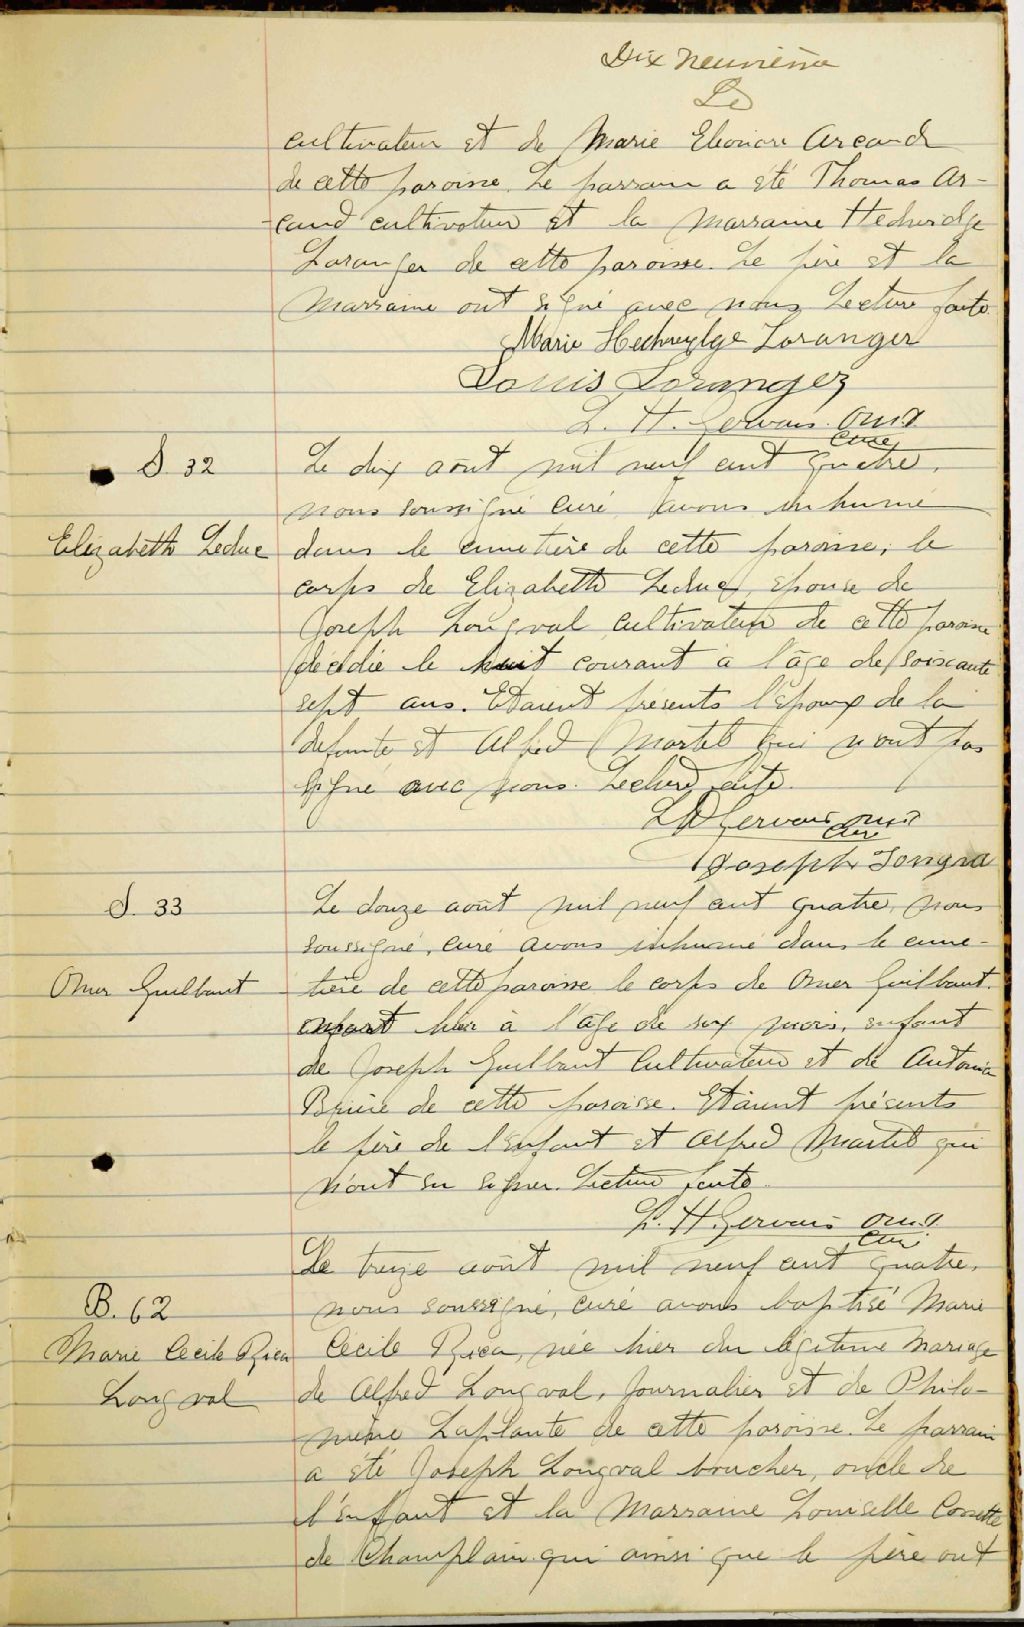 Dix neuvième
cultivateur et de Marie Eleonore Arcand
de cette paroisse. Le parrain a été Thomas Ar-
-cand cultivateur et la Marraine Hedwidge
Loranger de cette paroisse. Le père et la
Marraine ont signé avec nous Lecture faite
Marie Hedwydge Loranger
Louis Loranger
L. H. Gervais
curé
S. 32
Le dix août mil neuf cent quatre,
nous soussigné curé avons inhumé
Elizabeth Leduc
dans le cimetière de cette paroisse, le
corps de Elizabeth Leduc, épouse de
Joseph Longval cultivateur de cette paroisse
décédée le huit courant à l'âge de soixante
sept ans. Etaient présents l'époux de la
defunte et Alfred Martel qui n'ont pas
signé avec nous. Lecture faite.
L H Gervais
curé
Joseph Longva
S. 33
Le douze août mil neuf cent quatre, nous
soussigné, curé avons inhumé dans le cime-
Omer Guilbaut
tière de cette paroisse le corps de Omer Guilbaut.
hier à l'âge de six mois, enfant
de Joseph Guilbaut Cultivateur et de Antonia
de cette paroisse. Etaient présents
le père de l'enfant et Alfred Martel qui
n'ont su signer. Lecture faite.
L. H. Gervais
curé
Le treize août mil neuf cent quatre,
B. 62
nous soussigné, curé avons baptisé Marie
Marie Cécile Rica
Cécile Rica, née hier du légitime mariage
Longval
de Alfred Longval, Journalier et de Philo-
mène Laplante de cette paroisse. Le parrain
a été Joseph Longval boucher, oncle de
l'enfant et la Marraine Cossette
de Champlain qui ainsi que le père ont